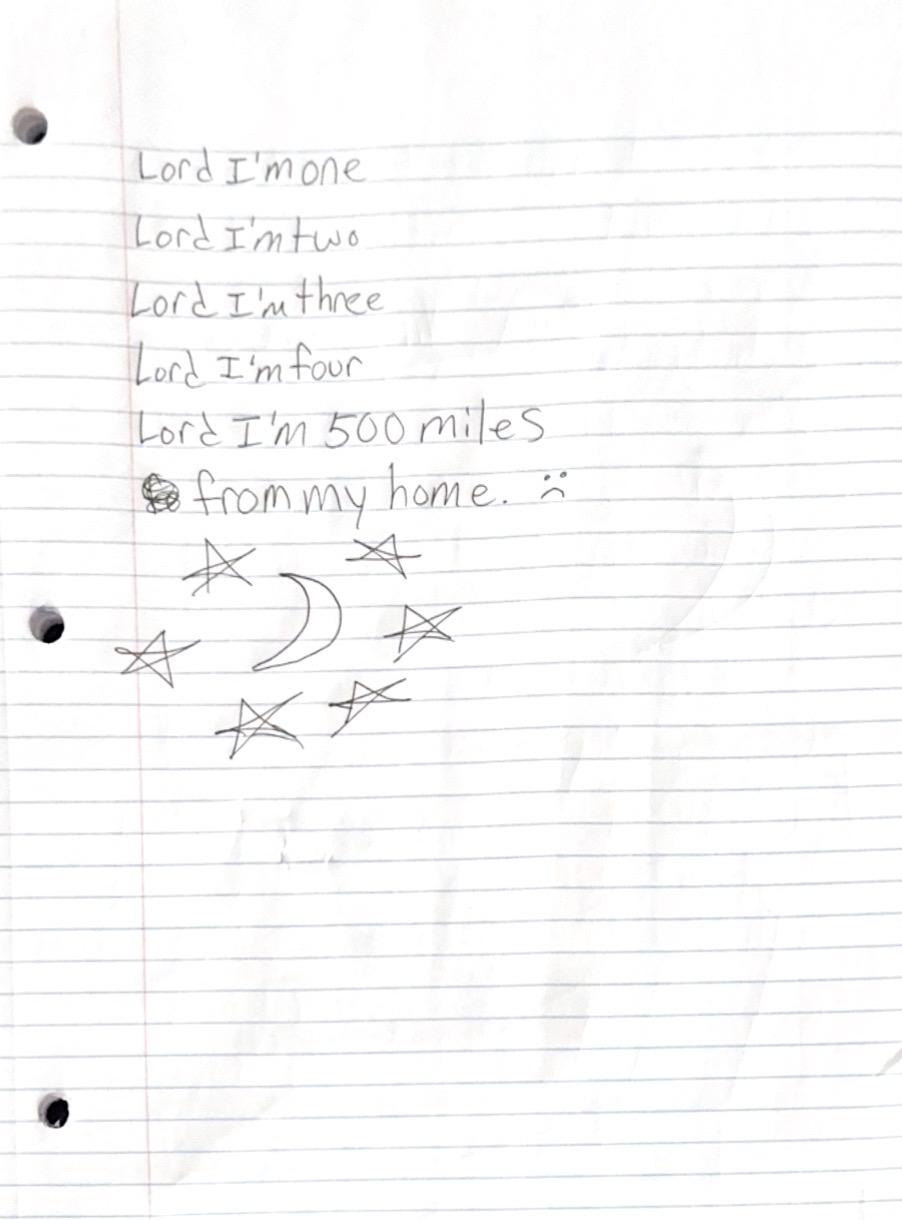 Lord I'm one
Lord I'm two
Lord I'm three
Lord I'm four
Lord I'm 500 miles
from my home. :(